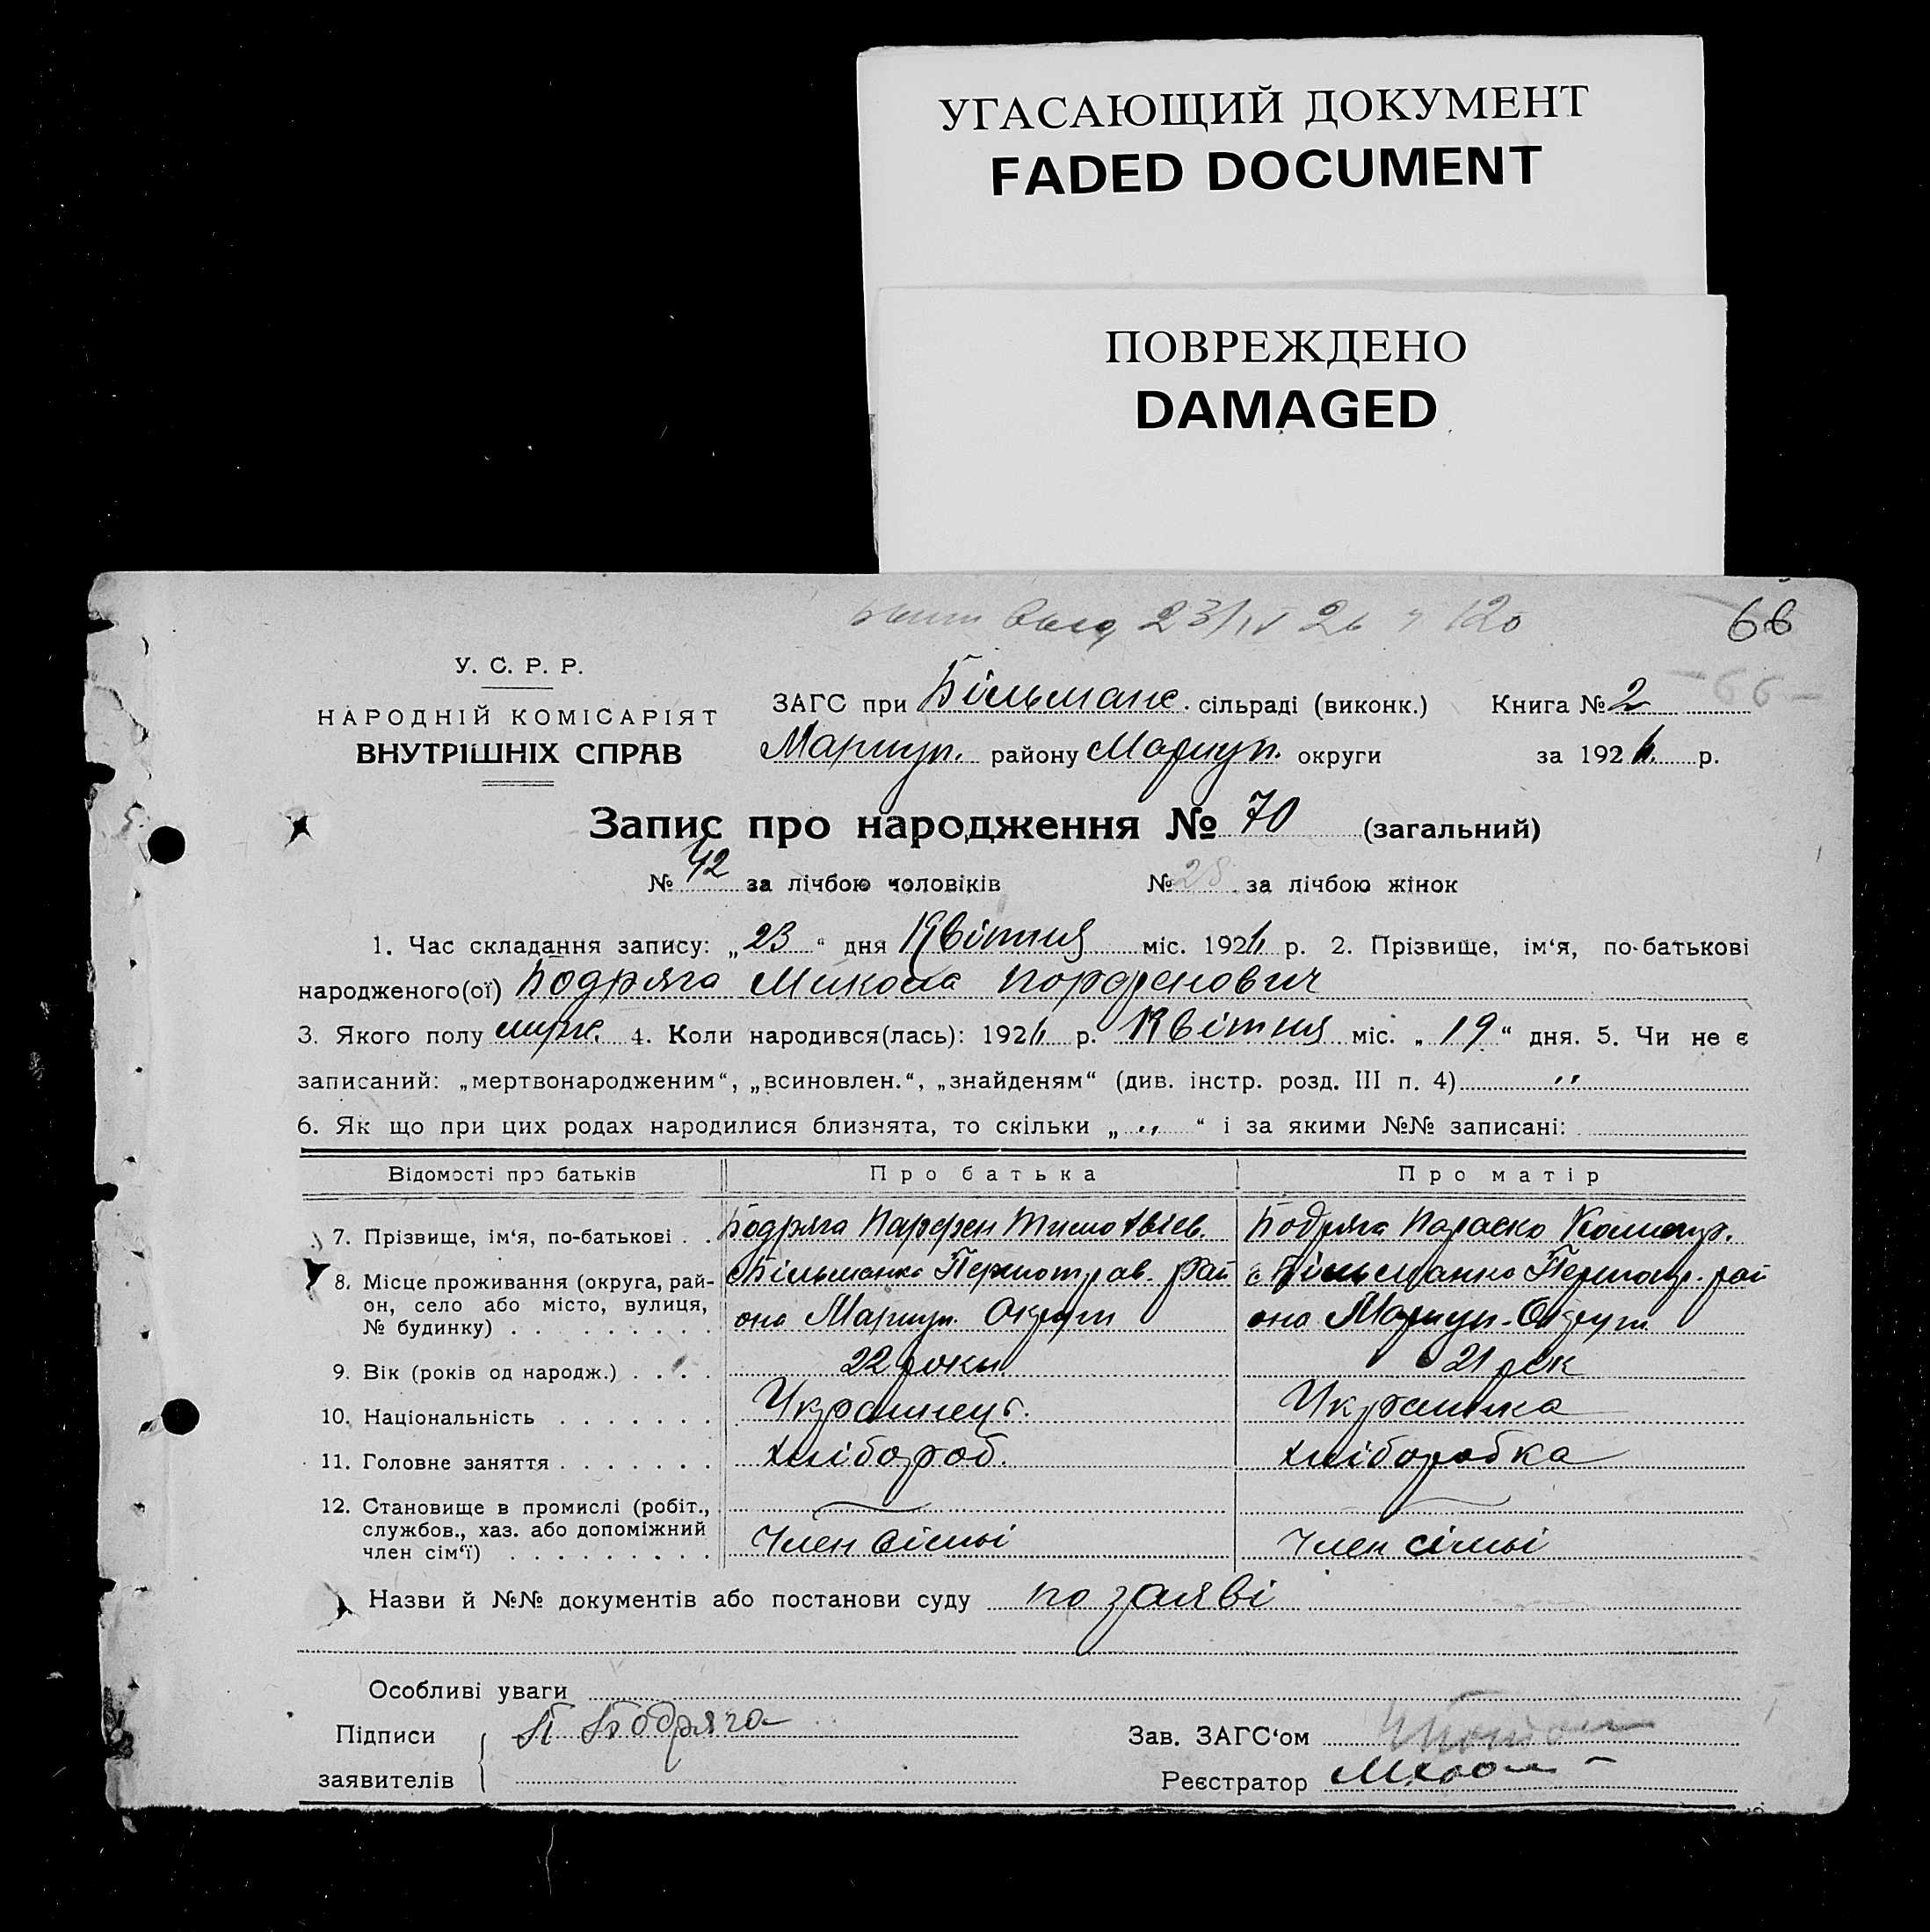 УГАСАЮЩИЙ ДОКУМЕНТ
FADED DOCUMENT
ПОВРЕЖДЕНО
DAMAGED
23/IV 26 120
66
У. С. Р. Р.
НАРОДНІЙ КОМІСАРІЯТ
ВНУТРІШНІХ СПРАВ
ЗАГС при Більманс. сільраді (виконк.) Книга № 2
66
Мариуп. району Мариуп. округи за 1926 р.
Запис про народження № 70 (загальний)
№ 42 за лічбою чоловіків № 28 за лічбою жінок
1. Час складання запису: „23“ дня Квітня міс. 1926 р. 2. Прізвище, ім‘я, по-батькові
народженого(ої) Бодряга Микола Порфенович
3. Якого полу муж. 4. Коли народився(лась): 1926 р. Квітня міс. „19“ дня. 5. Чи не є
записаний: „мертвонародженим“, „всиновлен.“, „знайденям“ (див. інстр. розд. III п. 4) „
6. Як що при цих родах народилися близнята, то скільки „ „ “ і за якими №№ записані:
Відомості про батьків Про батька Про матір
7. Прізвище, ім‘я, по-батькові . . Бодряга Парфен Тимофвіев. Бодряга Параско
8. Місце проживання (округа, рай- с Більманка рай с Більманка рай
он, село або місто, вулиця, она Мариуп. Округи она Мариуп. Округи
№ будинку) . . . . . . . . .
9. Вік (років од народж.) . . . . 22 роки. 21 рік
10. Національність . . . . . . . Украинець. Украинка
11. Головне заняття . . . . . . . хлібороб. хліборобка
12. Становище в промислі (робіт.,
службов., хаз. або допоміжний
член сім‘ї) . . . . . . . . . Член сімьі Член сімьі
Назви й №№ документів або постанови суду по заяві
Особливі уваги
Підписи П Бодряга Зав. ЗАГС‘ом
заявителів Реєстратор